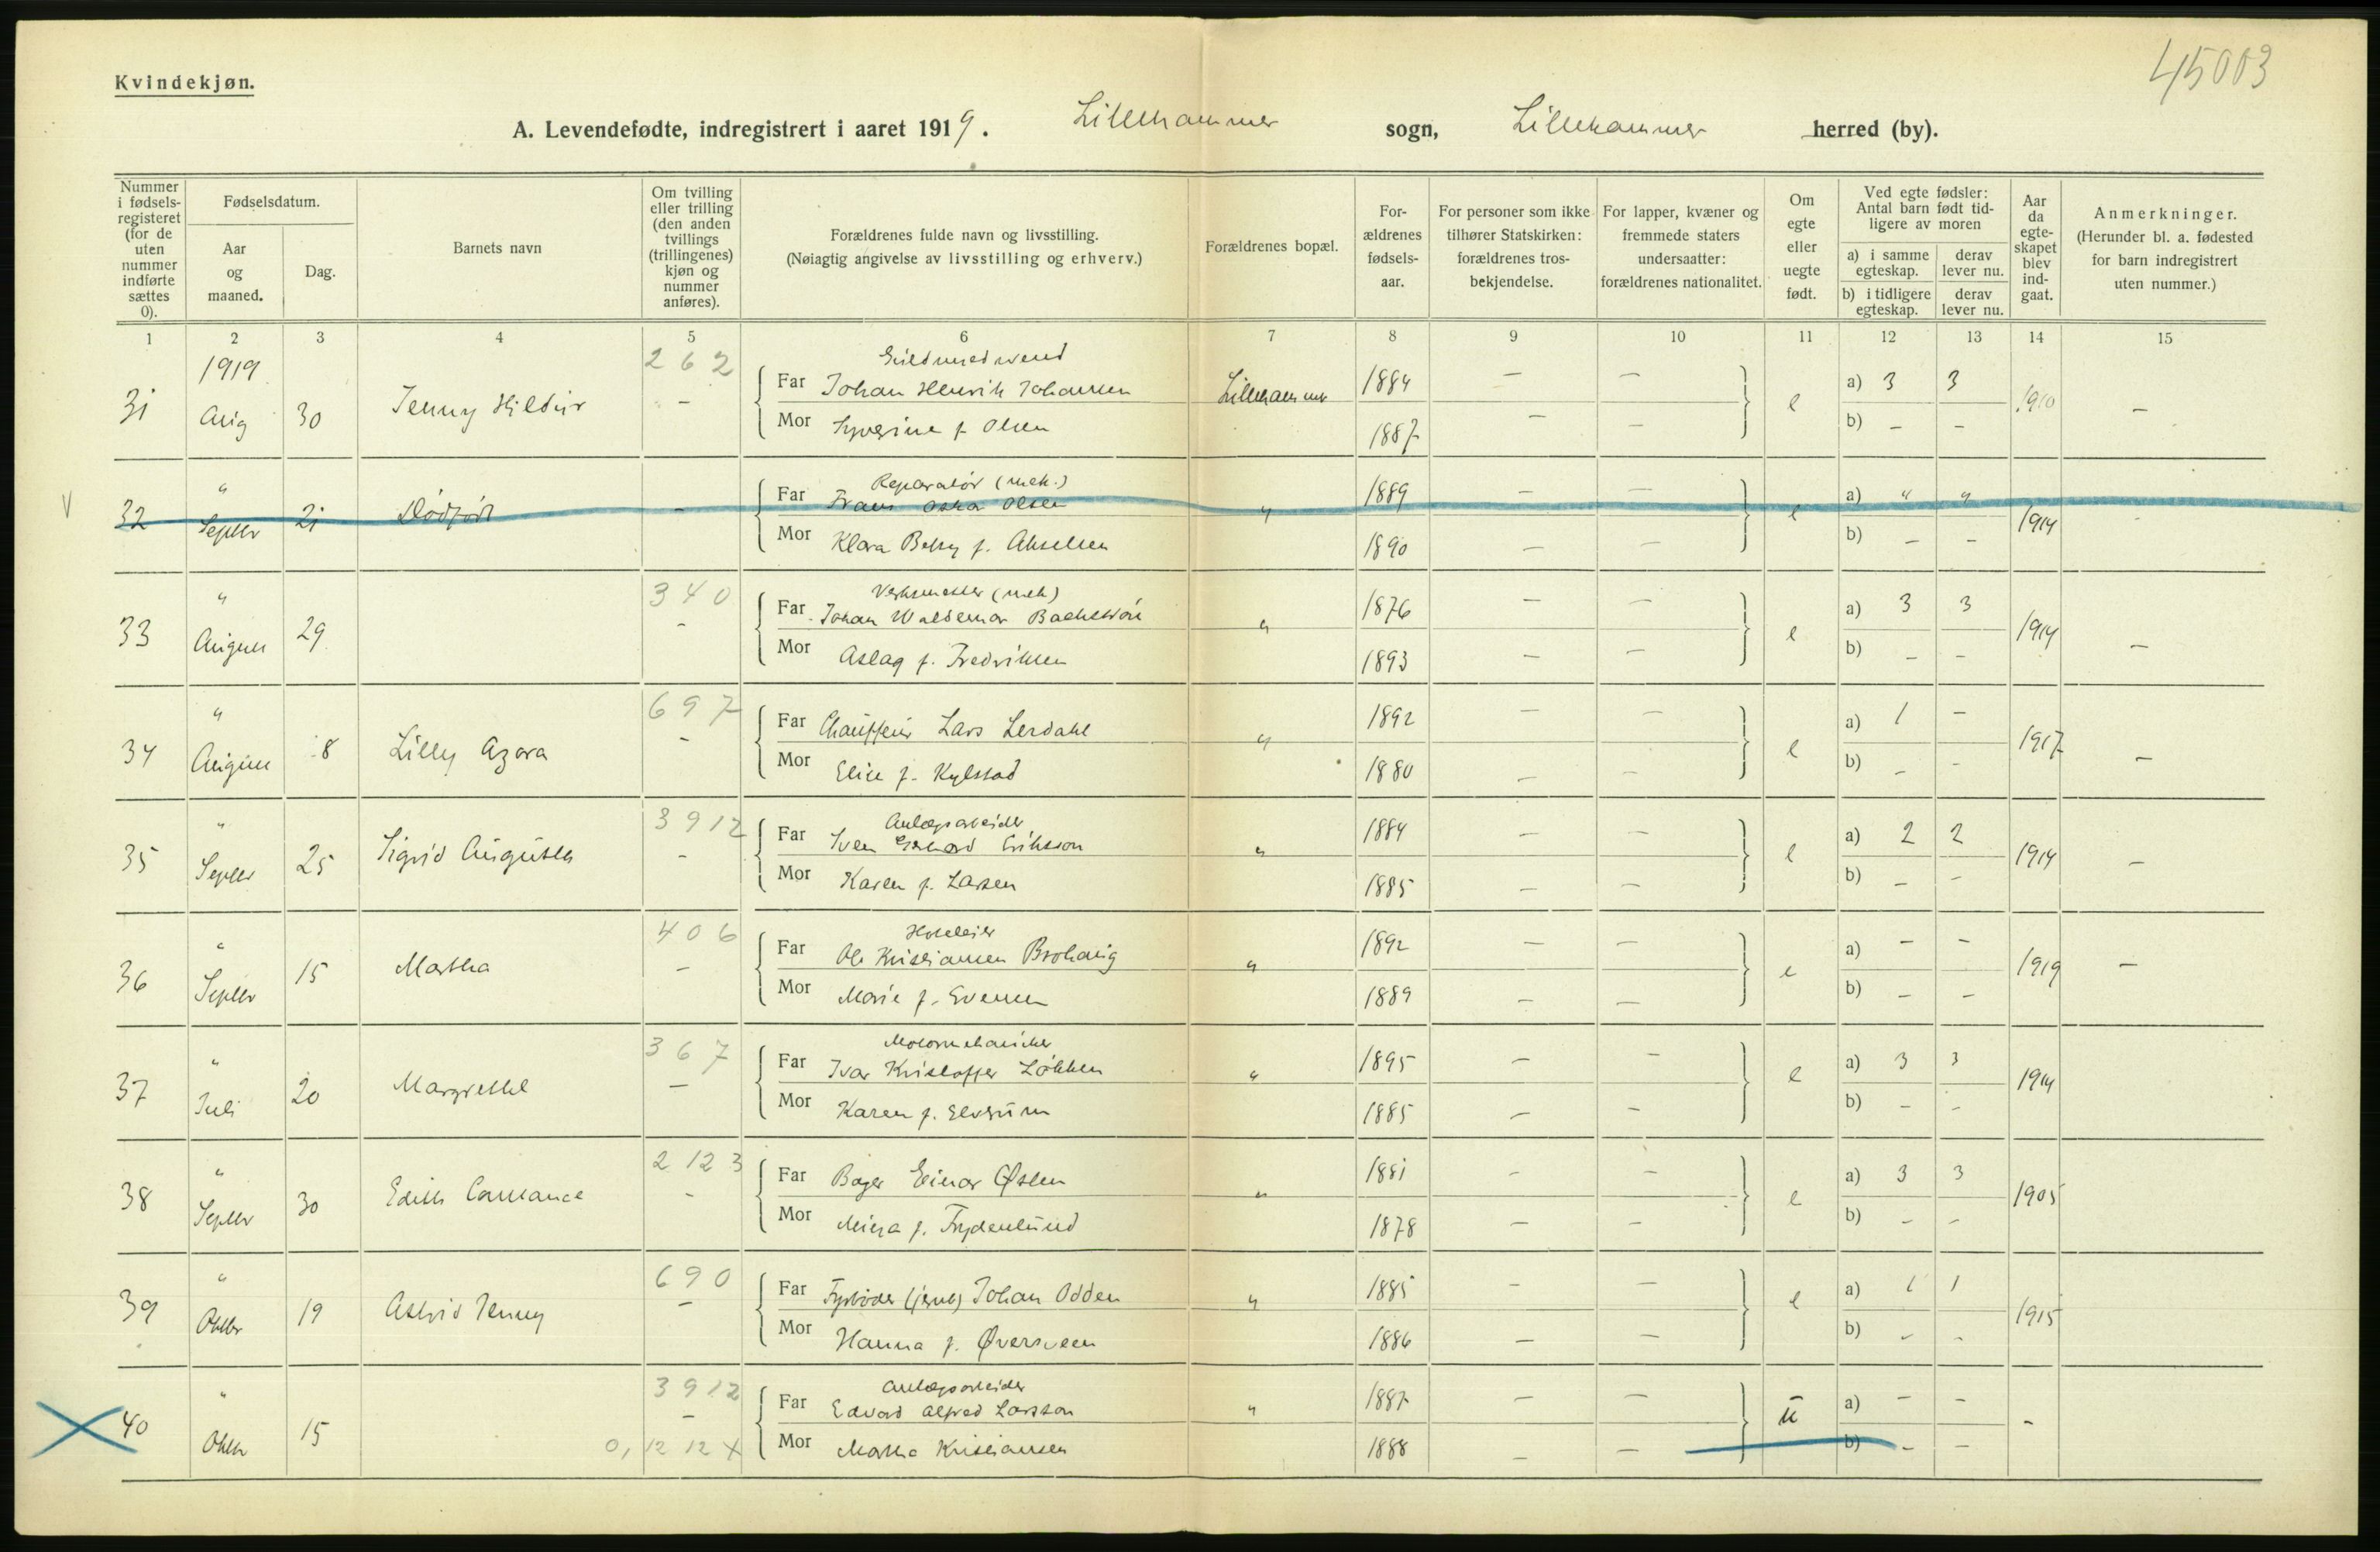 45003
Kvindekjøn.
A. Levendefødte, indregistrert i aaret 1919. Lillehammer sogn, Lillehammer herred (by).
Nummer i fødsels-registeret (for de uten nummer indførte sættes 0).
Fødselsdatum.
Aar og maaned.
Dag.
Barnets navn
Om tvilling eller trilling (den anden tvillings (trillingenes) kjøn og nummer anføres).
Forældrenes fulde navn og livsstilling.
(Nøiagtig angivelse av livsstilling og erhverv.)
Forældrenes bopæl.
For-ældrenes fødsels-aar.
For personer som ikke tilhører Statskirken: forældrenes tros-bekjendelse.
For lapper, kvæner og fremmede staters undersaatter: forældrenes nationalitet.
Om egte eller uegte født.
Ved egte fødsler: Antal barn født tid-ligere av moren
a) i samme egteskap.
derav lever nu.
b) i tidligere egteskap.
derav lever nu.
Aar da egte-skapet blev ind-gaat.
Anmerkninger.
(Herunder bl. a. fødested for barn indregistrert uten nummer.)
1 2 3 4 5 6 7 8 9 10 11 12 13 14 15
1919 262
31 Aug 30 Jenny Hildur – Far Johan Henrik Johansen Lillehammer 1884 – – e a) 3 3 1910 –
Mor Syverine f. Olsen 1887 – – b) – –
V " Reparatør (mek.)
32 Septbr 21 Dødfødt – Far Frans Oskar Olsen " 1889 – – e a) " " 1914
Mor Klara Betsy f. Akselsen 1890 – – b) – –
" 340 Verksmester (mek)
33 August 29 – Far Johan Waldemar " 1876 – – e a) 3 3 1914 –
Mor Aslaug f. Fredriksen 1893 – – b) – –
" 697
34 August 8 Lilly Azora – Far Chauffeur Lars Lerdahl " 1892 – – e a) 1 – 1917 –
Mor Elise f. Kylstad 1880 – – b) – –
" 3912 Anlægsarbeider
35 Septbr 25 Sigrid Augusta – Far Sven Gerhard Eriksson " 1884 – – e a) 2 2 1914 –
Mor Karen f. Larsen 1885 – – b) – –
" 406 Hoteleier
36 Septbr 15 Martha – Far Ole Kristiansen Brohaug " 1892 – – e a) – – 1919 –
Mor Marie f. Evensen 1889 – – b) – –
" 367 Motormekaniker
37 Juli 20 Margrethe – Far Ivar Kristoffer Løkken " 1895 – – e a) 3 3 1914
Mor Karen f. Elverum 1885 – – b) – –
" 2123
38 Septbr 30 Edith Constance – Far Bager Einar Østen " 1881 – – e a) 3 3 1905
Mor f. Frydenlund 1878 – – b) – –
" 690
39 Oktbr 19 Astrid Jenny – Far Fyrbøder (jernb) Johan Odden " 1885 – – e a) 1 1 1915
Mor Hanna f. Øversveen 1886 – – b) – –
" 3912 Anlægsarbeider
40 Oktbr 15 – Far Edvard Alfred Larsson " 1887 – – u a) – – –
0,12 12 X Mor Martha Kristiansen 1888 – – b) – –